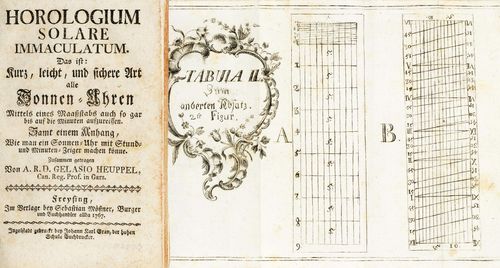 HOROLOGIUM
SOLARE
IMMACULATUM.
Das ist:
Kurz, leicht, und sichere Art
alle
Sonnen-Uhren
Mittels eines Maasstabs auch so gar
bis auf die Minuten aufzureissen.
Samt einem Anhang,
Wie man ein Sonnen-Uhr mit Stund-
und Minuten-Zeiger machen könne.
Zusammen getragen
Von A. R. D. GELASIO HEUPPEL,
Can. Reg. Prof. in Gars.
Freysing,
Zu Verlage bey Sebastian Mößner, Burger
und Buchhandler allda 1767.
Ingolstadt gedruckt bey Johann Karl Gran, der hohen
Schule Buchdrucker.
TABULA II.
Zum
anderten Absatz.
2te Figur.
A.
3
4
5
6
7
8
9
B.